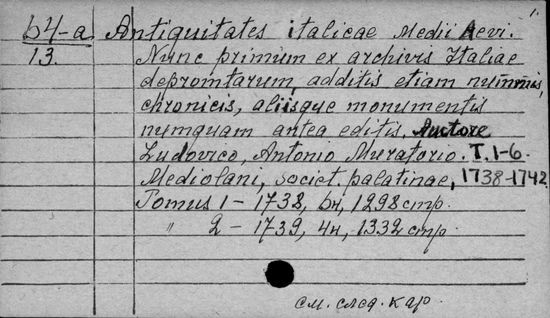 1.
64-a Antiquitates italicae Medii Aevi.
13. Nunc primum ex archivis Italiae
depromtarum, additis etiam nummis,
chronicis, aliisque monumentis
numquam antea editis, Auctore
Ludovico, Antonio Muratorio. T. 1-6.
Mediolani, societ. palatinae, 1738-1742
Tomus 1 - 1738, 6н, 1298 стр.
" 2 - 1739, 4н, 1332 стр.
см. след. кар.